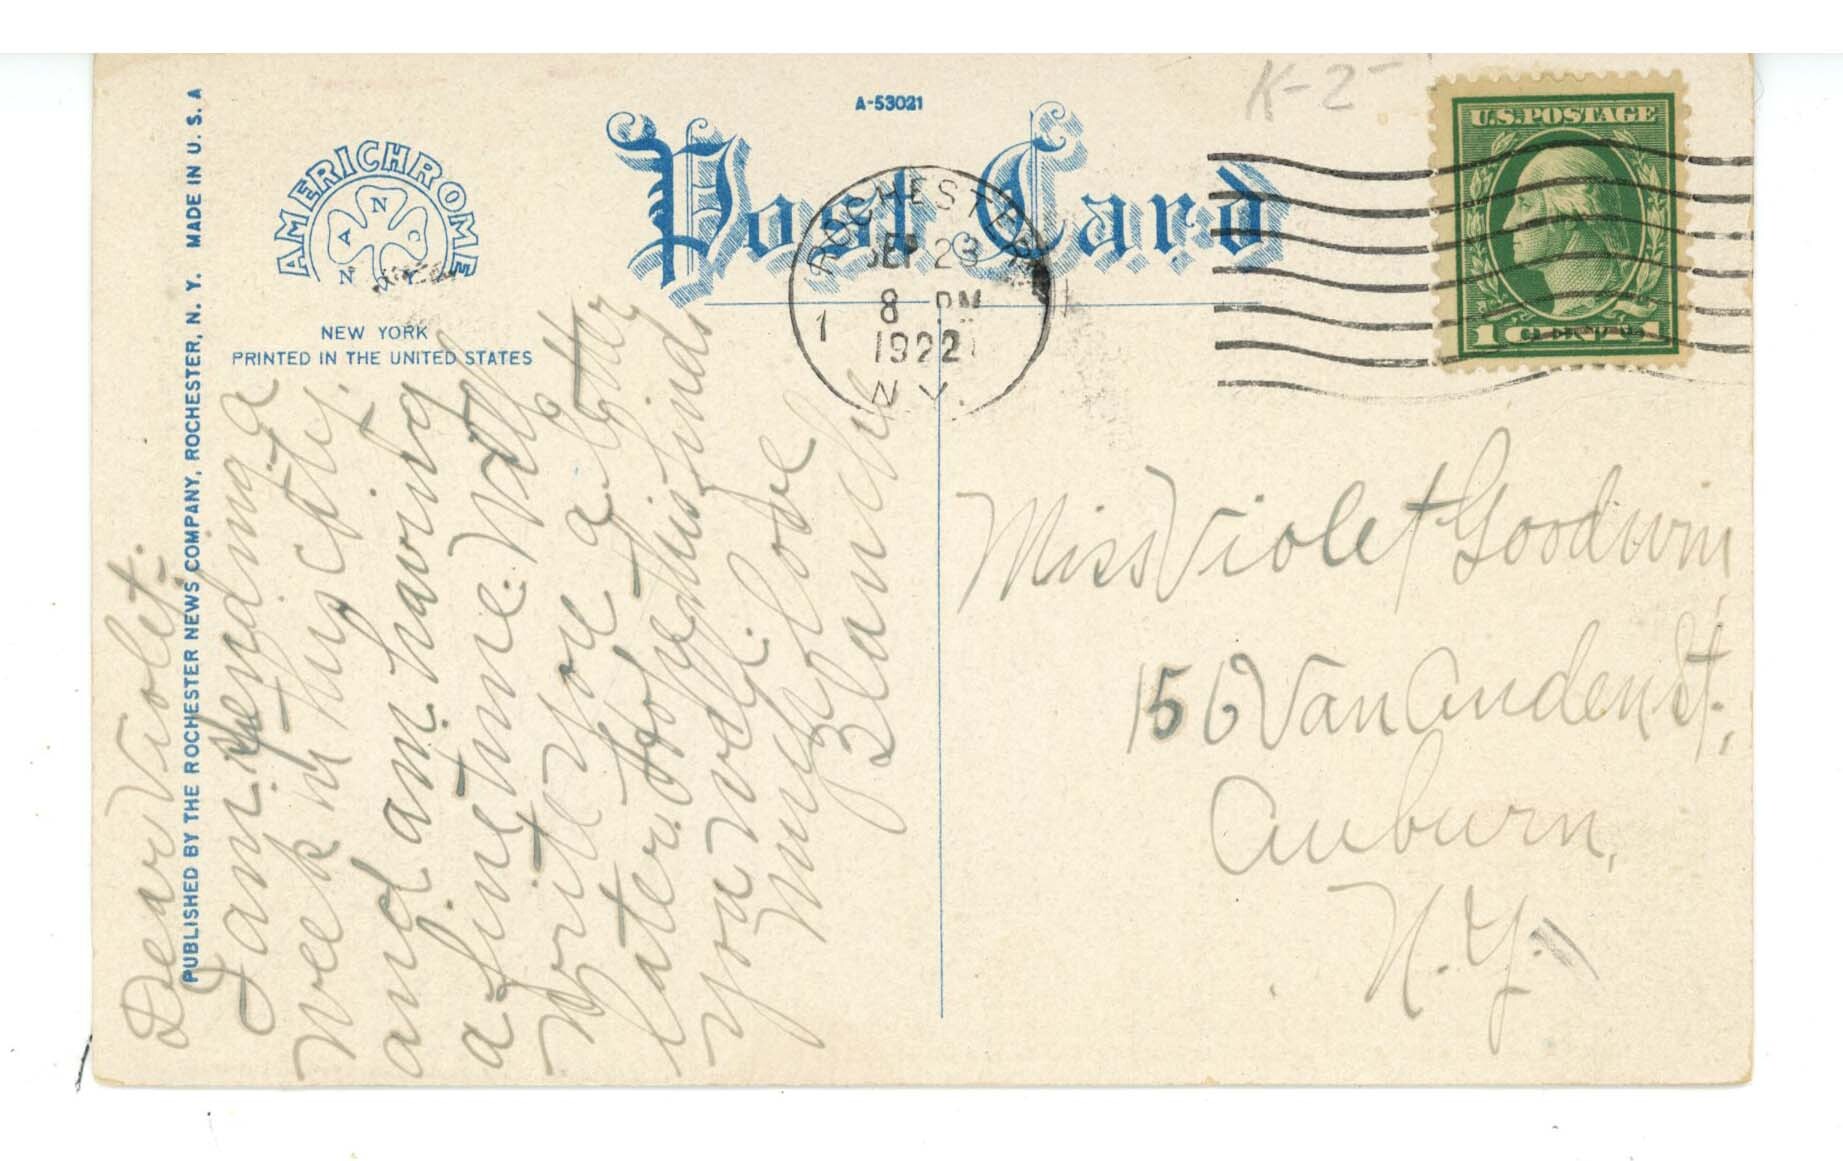 PUBLISHED BY THE ROCHESTER NEWS COMPANY, ROCHESTER, N. Y. MADE IN U. S. A
AMERICHROME
A N C
N N Y
NEW YORK
PRINTED IN THE UNITED STATES
A-53021
Post Card
K-2-
ROCHESTER
SEP 23
8 PM
1
1922
N Y.
U.S. POSTAGE
1 CENT 1
Dear Violet:-
I am spending a
week in this city.
and am having
a fine time. Will
write you a letter
later. Hope this finds
you well.
Much love
Blanche
Miss Violet Goodwin
156 Van Anden St.,
Auburn,
N.Y.